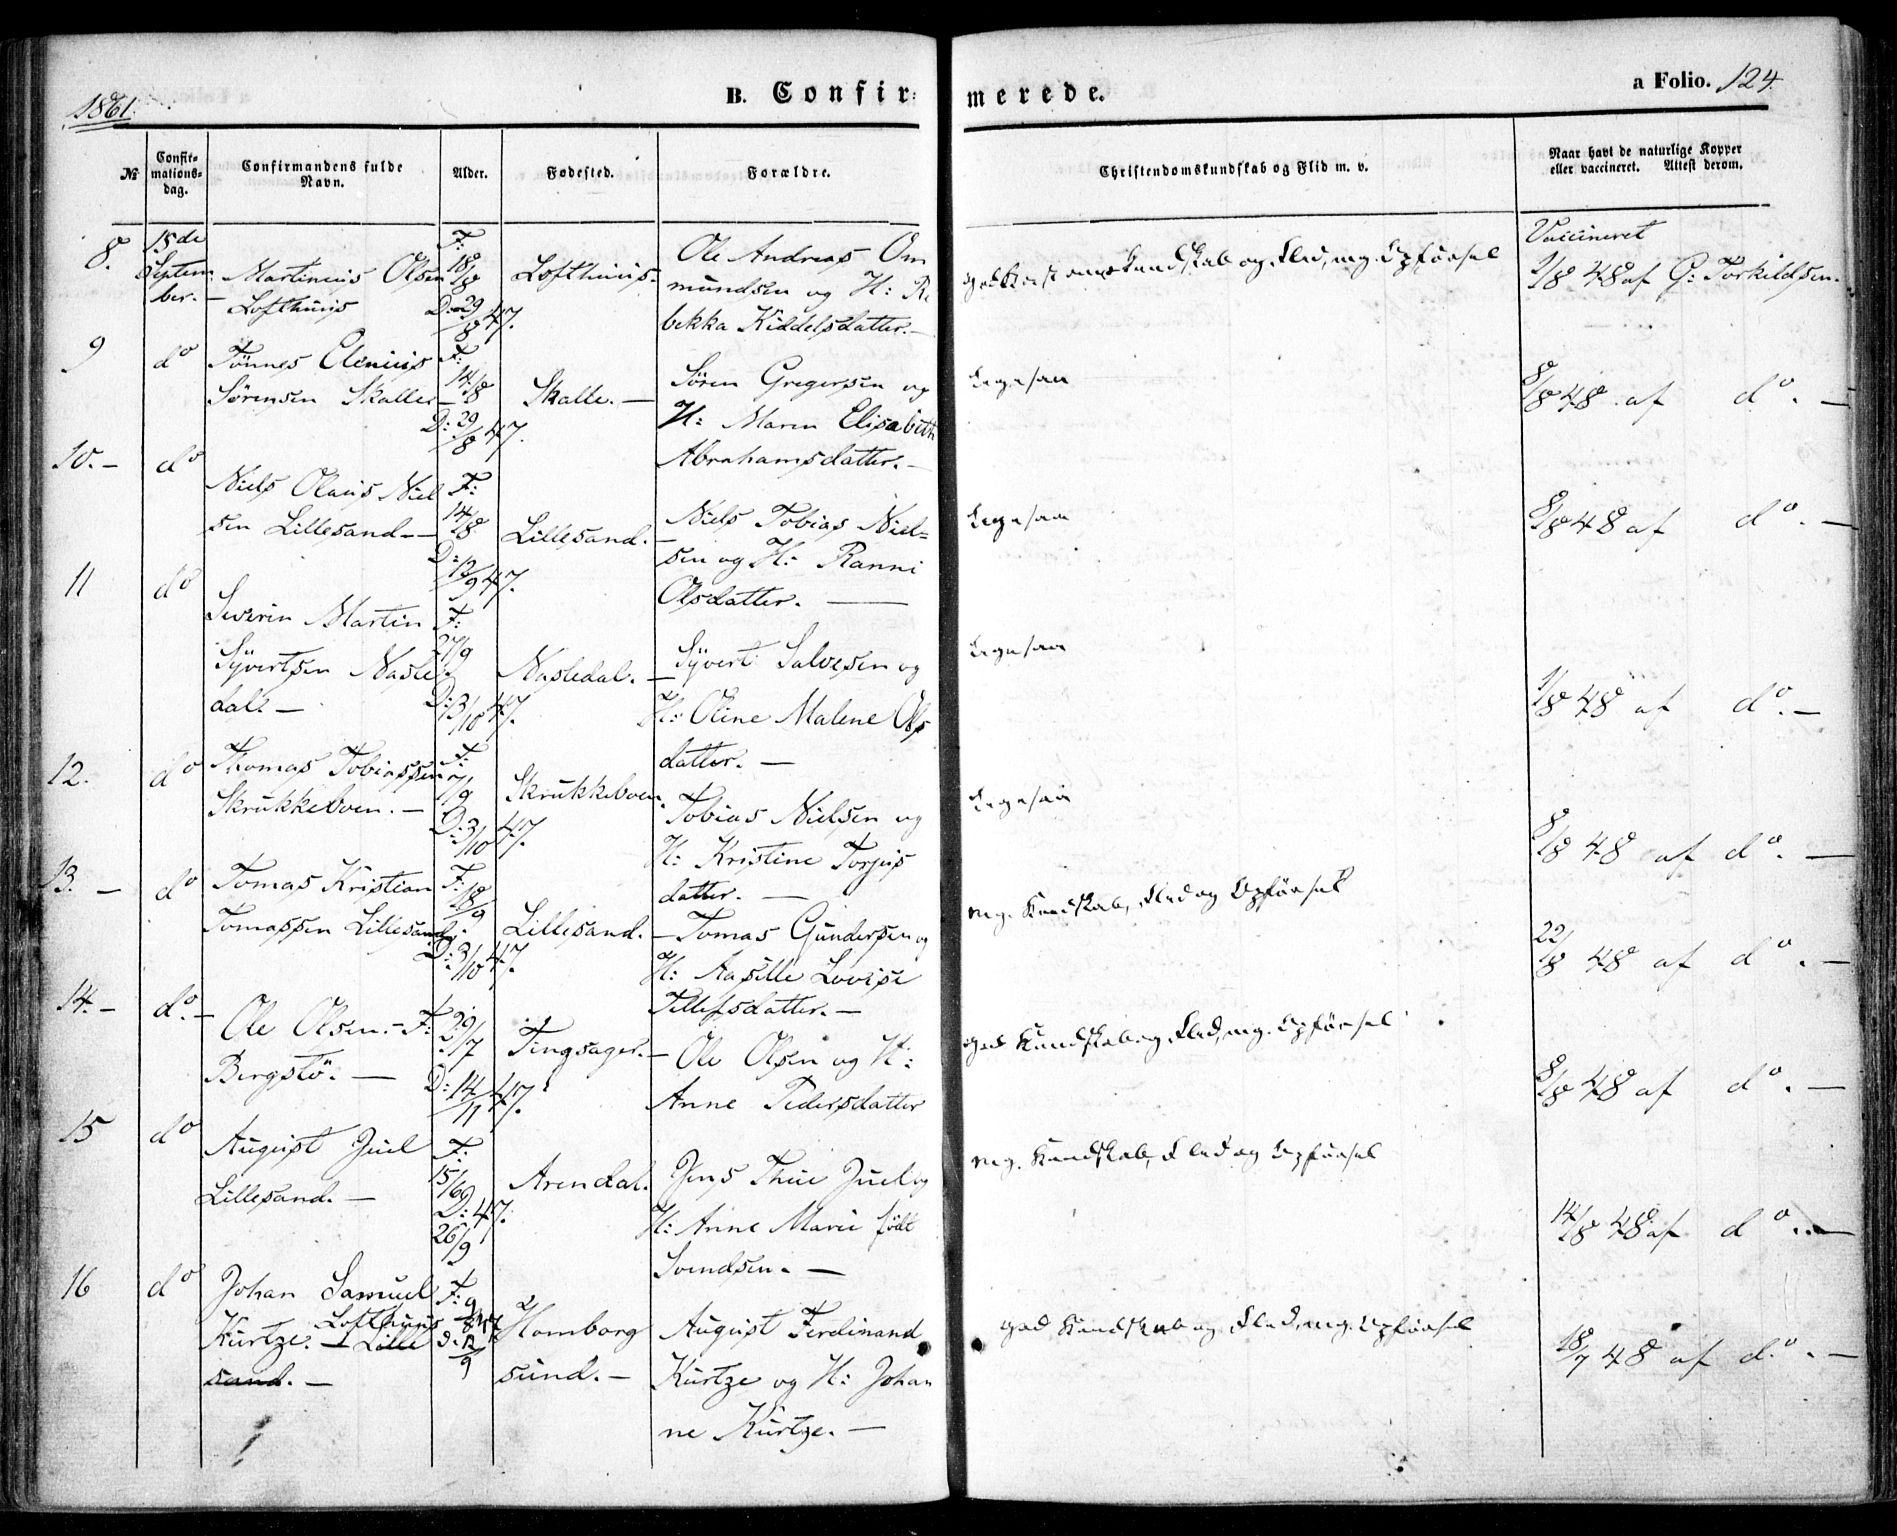 1861.
B. Confir-
merede.
a Folio. 124.
№
Confir-
mations-
dag.
Confirmandens fulde
Navn.
Alder.
Fødested.
Forældre.
Christendomskundskab og Flid m. v.
Naar havt de naturlige Kopper
eller vaccineret. Attest derom.
8.
15de
Septem
ber. –
Martinius Olsen
Lofthuus
F:
18/8
D: 29/8 47.
Lofthuus.
Ole Andreas Om
mundsen og H: Re
bekka Kiddelsdatter. –
god Kristendomskundskab og Flid, mg. Opførsel
Vaccineret
1/8 48 af G: Torkildsen.
9
do
Tönnes Elenius
Sørensen Skalle –
F:
14/8
D: 29/8 47.
Skalle. –
Søren Gregersen og
H: Maren Elisabeth
Abrahamsdatter. –
Ligesaa
8/8 48 af do. –
10. –
do
Niels Olaus Niel
sen Lillesand –
F:
14/8
D: 12/9 47.
Lillesand. –
Niels Tobias Niel=
sen og H: Ranni
Olsdatter. –
Ligesaa
8/8 48 af do. –
11
do
Severin Martin
Syvertsen Nasle
dal. –
F:
27/9
D: 3/10 47.
Nasledal. –
Syvert Salvesen og
H: Oline Malene Ols
datter. –
Ligesaa
1/8 48 af do. –
12.
do
Thomas Tobiassen
Skrukkeboen. –
F:
7/9
D: 3/10 47.
Skrukkeboen.
Tobias Nielsen og
H: Kristine Torjus
datter. –
Ligesaa
8/8 48 af do. –
13. –
do
Tomas Kristian
Tomassen Lillesand
F:
18/9
D: 3/10 47.
Lillesand. –
Tomas Gundersen og
H: Aasille Lovise
Tellefsdatter. –
mg. Kundskab, Flid og Opførsel
22/8 48 af do. –
14. –
do. –
Ole Olsen. –
Bergstö. –
F: 29/7
D: 14/11 47.
Tingsager. –
Ole Olsen og H:
Anne Pedersdatter
god Kundskab og Flid, mg. Opførsel
8/8 48 af do. –
15
do
August Juel
Lillesand. –
F:
15/6
D: 47.
26/9
Arendal.
Jens Thue Juel og
H: Anne Marie født
Svendsen. –
mg. Kundskab, Flid og Opførsel
14/8 48 af do. –
16
do
Johan Samuel
Lofthuus
Kurtze. – Lille
sand. –
F: 9
D: 12/9
Homborg
sund. –
August Ferdinand
Kurtze og H: Johan
ne Kurtze. –
god Kundskab og Flid, mg. Opførsel
18/7 48 af do. –